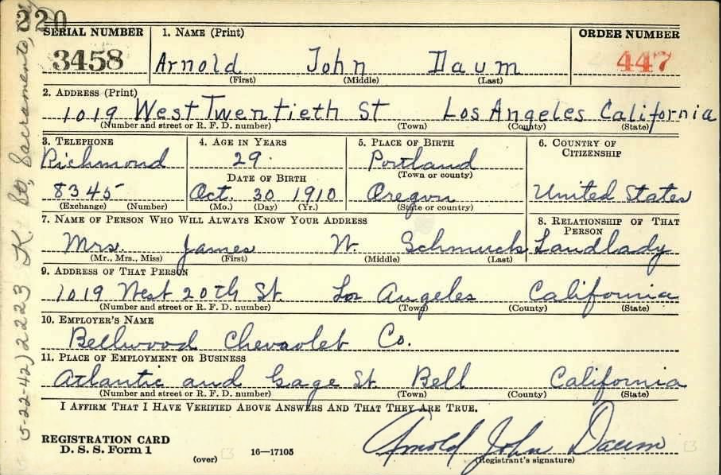 220
SERIAL NUMBER 1. NAME (Print) ORDER NUMBER
3458 Arnold John Daum 447
(First) (Middle) (Last)
2. ADDRESS (Print)
1019 West Twentieth St Los Angeles California
(Number and street or R. F. D. number) (Town) (County) (State)
3. TELEPHONE 4. AGE IN YEARS 5. PLACE OF BIRTH 6. COUNTRY OF CITIZENSHIP
Richmond 29. Portland
(Town or county)
DATE OF BIRTH
8345 Oct. 30 1910 Oregon United States
(Exchange) (Number) (Mo.) (Day) (Yr.) (State or country)
7. NAME OF PERSON WHO WILL ALWAYS KNOW YOUR ADDRESS 8. RELATIONSHIP OF THAT PERSON
Mrs. James W. Schmuck Landlady
(Mr., Mrs., Miss) (First) (Middle) (Last)
9. ADDRESS OF THAT PERSON
1019 West 20th St. Los Angeles California
(Number and street or R. F. D. number) (Town) (County) (State)
10. EMPLOYER'S NAME
Bellwood Chevrolet Co.
11. PLACE OF EMPLOYMENT OR BUSINESS
Atlantic and Gage St Bell California
(Number and street or R. F. D. number) (Town) (County) (State)
I AFFIRM THAT I HAVE VERIFIED ABOVE ANSWERS AND THAT THEY ARE TRUE.
REGISTRATION CARD
D. S. S. Form 1
(over) 16—17105
Arnold John Daum
(Registrant's signature)
5-22-42) 2223 K St, Sacramento,